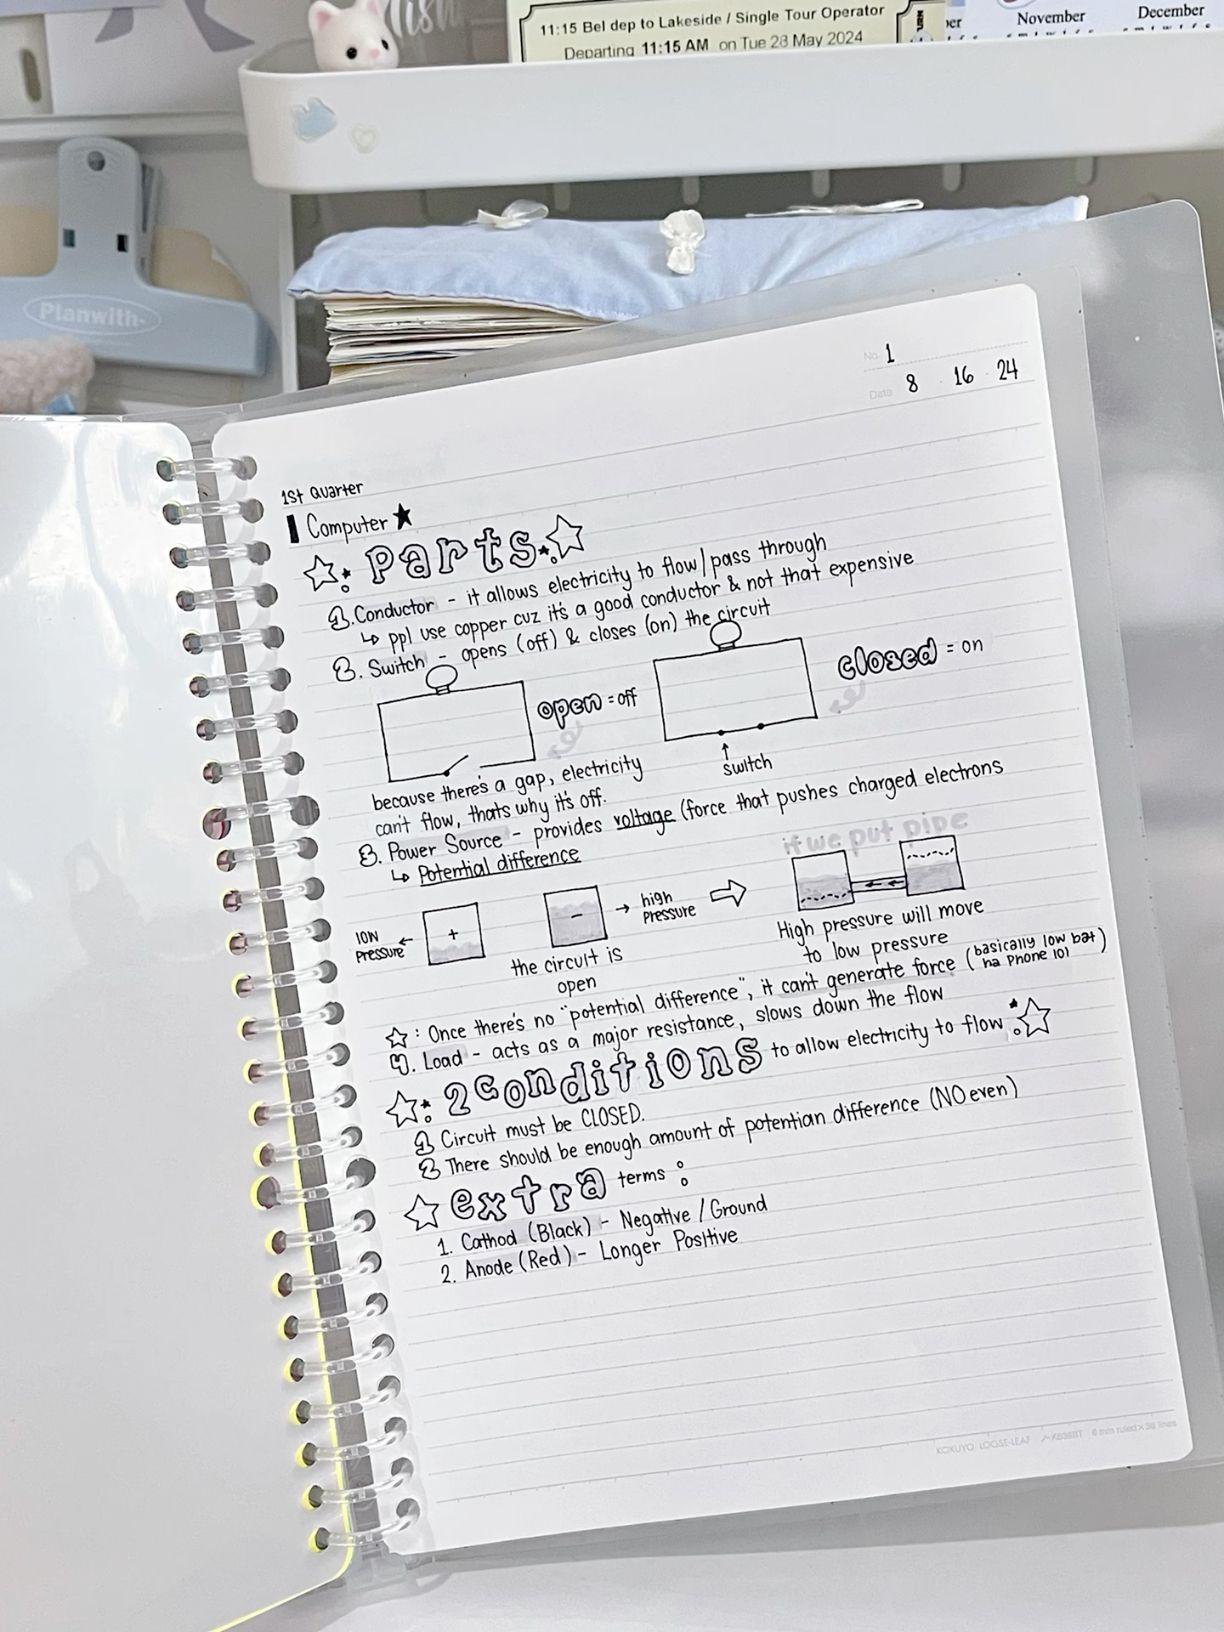 11:15 Bel dep to Lakeside / Single Tour Operator
Departing 11:15 AM on Tue 28 May 2024
November
December
Planwith-
No. 1
Date 8 16 24
1st Quarter
Computer
Parts
1. Conductor - it allows electricity to flow/pass through
↳ ppl use copper cuz it's a good conductor & not that expensive
2. Switch - opens (off) & closes (on) the circuit
open = off
closed = on
switch
because there's a gap, electricity
can't flow, thats why it's off.
3. Power Source - provides voltage (force that pushes charged electrons
↳ Potential difference
if we put pipe
low
pressure
+
-
→ high
pressure
the circuit is
open
High pressure will move
to low pressure
☆: Once there's no "potential difference", it can't generate force (basically low bat
na phone lol)
4. Load - acts as a major resistance, slows down the flow
2 conditions to allow electricity to flow
1 Circuit must be CLOSED.
2 There should be enough amount of potentian difference (NO even)
extra terms :
1. Cathod (Black) - Negative / Ground
2. Anode (Red) - Longer Positive
KOKUYO LOOSE-LEAF 6 mm ruled × 36 lines